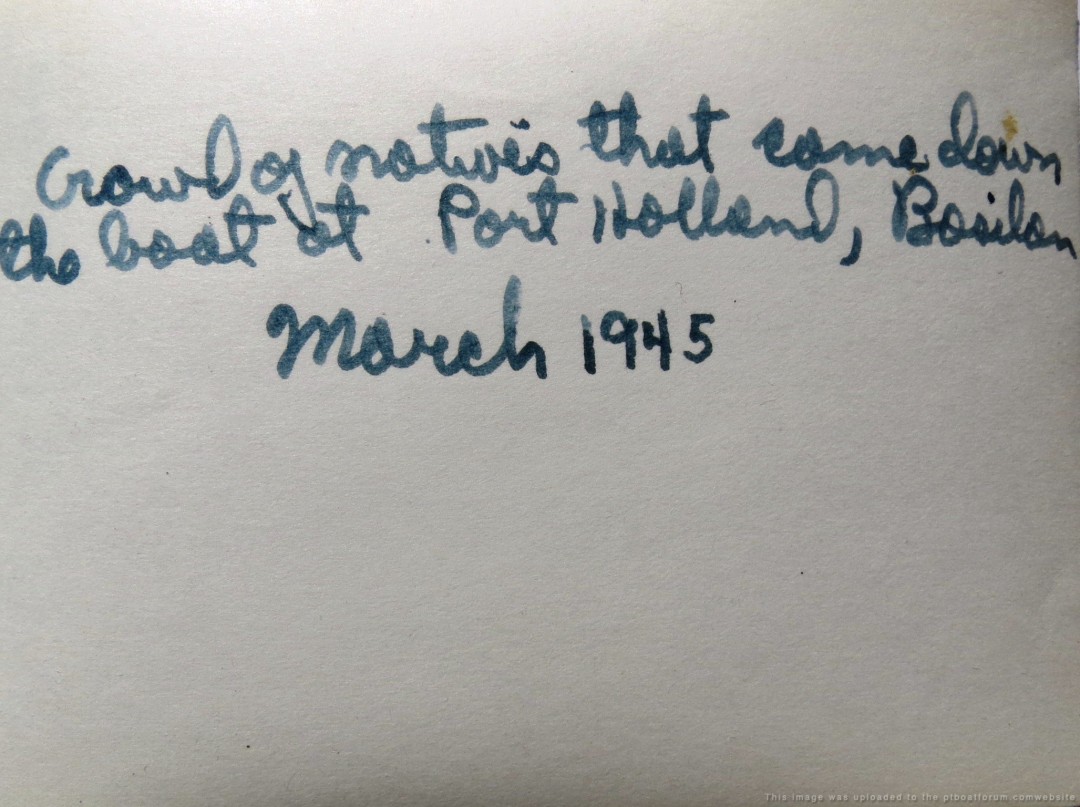 Crowd of natives that came down
the boat at Port Holland, Basilan
March 1945
This image was uploaded to the ptboatforum.comwebsite